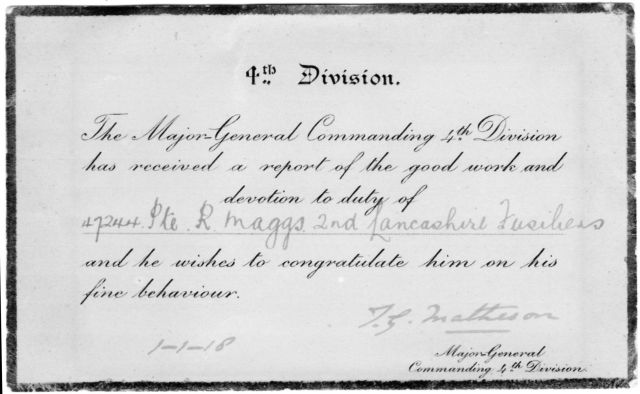 4th Division.
The Major-General Commanding 4th Division
has received a report of the good work and
devotion to duty of
47244 Pte. R Maggs. 2nd Lancashire Fusiliers
and he wishes to congratulate him on his
fine behaviour.
T. G. Matheson
1-1-18
Major-General
Commanding 4th Division.